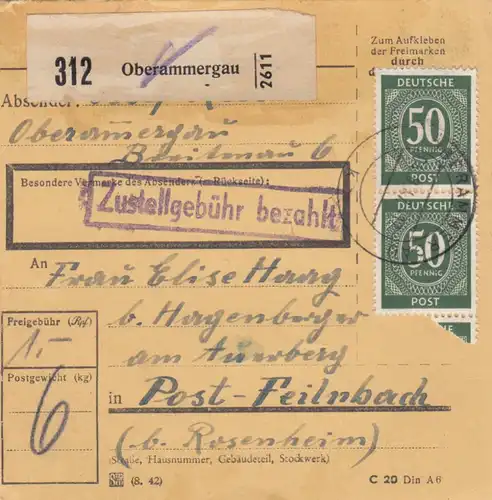 Zum Aufkleben
der Freimarken
durch
d
312 Oberammergau 2611
Absender:
Oberammergau
Breitenau 6
Besondere Vermerke des Absenders (s. Rückseite):
Zustellgebühr bezahlt
DEUTSCHE
50
PFENNIG
POST
DEUTSCHE
50
PFENNIG
POST
An
Frau Elise Haag
b. Hagenberger
am Auerberg
in Post-Feilnbach
(b. Rosenheim)
(Straße, Hausnummer, Gebäudeteil, Stockwerk)
Freigebühr (Rpf)
1.-
Postgewicht (kg)
6
(8. 42)
C 20 Din A6